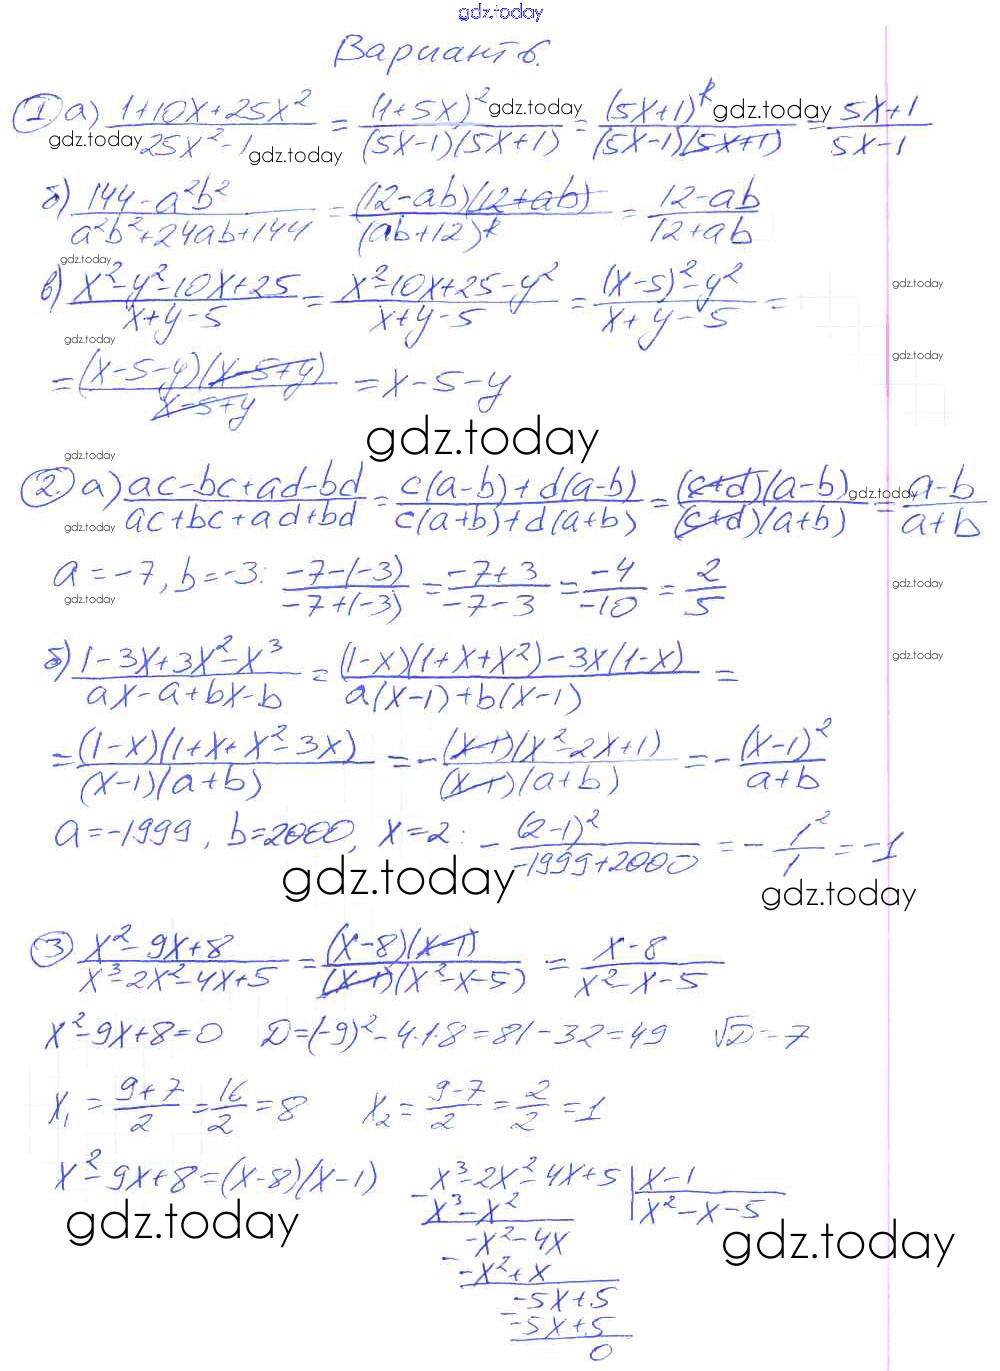 gdz.today
Вариант 6.
1 а) (1+10x+25x²)/(25x²-1) = (1+5x)²/((5x-1)(5x+1)) = (5x+1)²/((5x-1)(5x+1)) = (5x+1)/(5x-1)
gdz.today gdz.today gdz.today gdz.today
б) (144-a²b²)/(a²b²+24ab+144) = ((12-ab)(12+ab))/(ab+12)² = (12-ab)/(12+ab)
gdz.today
в) (x²-y²-10x+25)/(x+y-5) = (x²-10x+25-y²)/(x+y-5) = ((x-5)²-y²)/(x+y-5) =
gdz.today
gdz.today gdz.today
= ((x-5-y)(x-5+y))/(x-5+y) = x-5-y
gdz.today
gdz.today
2. а) (ac-bc+ad-bd)/(ac+bc+ad+bd) = (c(a-b)+d(a-b))/(c(a+b)+d(a+b)) = ((c+d)(a-b))/((c+d)(a+b)) = (a-b)/(a+b)
gdz.today gdz.today
a=-7, b=-3: (-7-(-3))/(-7+(-3)) = (-7+3)/(-7-3) = -4/-10 = 2/5
gdz.today gdz.today
б) (1-3x+3x²-x³)/(ax-a+bx-b) = ((1-x)(1+x+x²)-3x(1-x))/(a(x-1)+b(x-1)) =
gdz.today
= ((1-x)(1+x+x²-3x))/((x-1)(a+b)) = -((x-1)(x²-2x+1))/((x-1)(a+b)) = -(x-1)²/(a+b)
a=-1999, b=2000, x=2: -(2-1)²/(-1999+2000) = -1²/1 = -1
gdz.today gdz.today
3 (x²-9x+8)/(x³-2x²-4x+5) = ((x-8)(x-1))/((x-1)(x²-x-5)) = (x-8)/(x²-x-5)
x²-9x+8=0 D=(-9)²-4·1·8=81-32=49 √D=7
x₁ = (9+7)/2 = 16/2 = 8 x₂ = (9-7)/2 = 2/2 = 1
x²-9x+8=(x-8)(x-1)
gdz.today
x³-2x²-4x+5 | x-1
- x³-x² | x²-x-5
gdz.today
-x²-4x
- -x²+x
-5x+5
- -5x+5
0